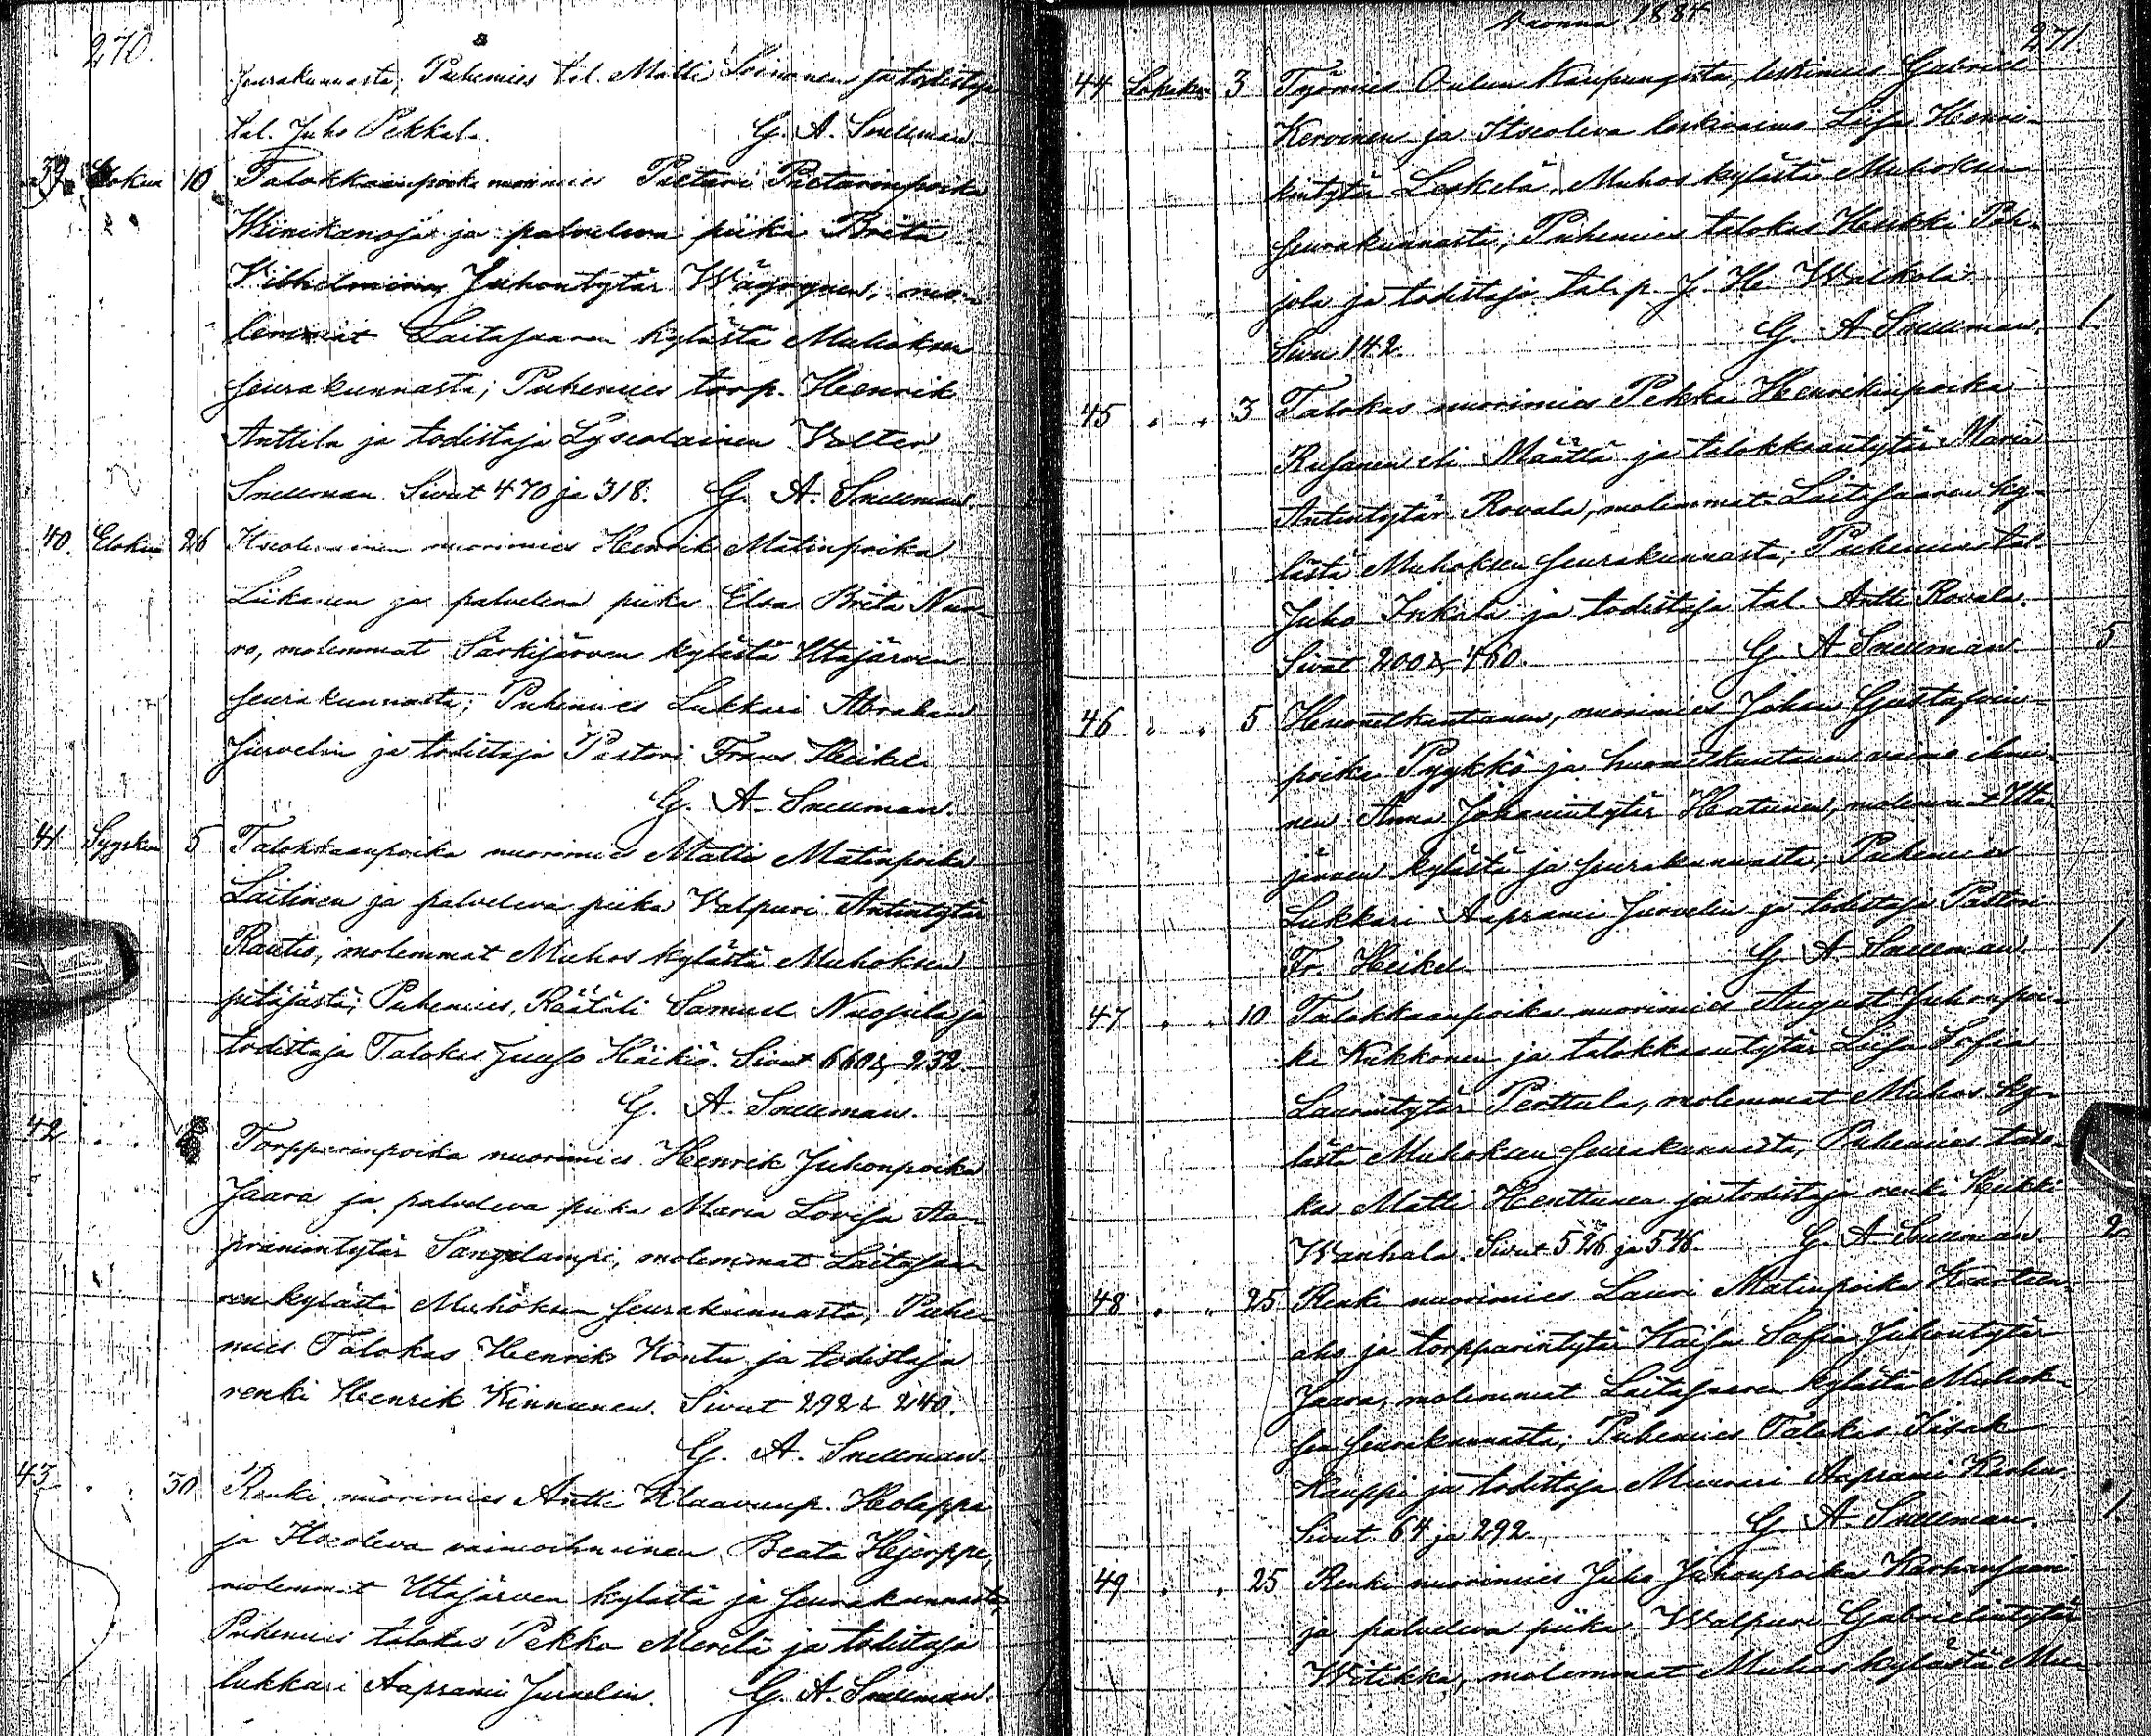 270.
seurakunnasta; Puhemies tal. Matti Soinanen ja todistaja
tal. Juho Pekkala. G. A. Snellman.
39 Elokuu 10 Talokkaanpoika nuorimies Pietari Pietarinpoika
Kiinikanoja ja palveleva piika Brita
Vilhelmina Juhontytär Wäyrynen, mo-
lemmat Laitasaaren kylästä Muhoksen
seurakunnasta; Puhemies torp. Henrik
Anttila ja todistaja Lyseolainen Valter
Snellman. Sivut 470 ja 318. G. A. Snellman. 2
40. Elokuu 26 Itseolevainen nuorimies Henrik Matinpoika
Liikanen ja palveleva piika Elsa Brita Nuo-
ro, molemmat Särkijärven kylästä Utajärven
seurakunnasta; Puhemies Lukkari Abraham
Jurvelin ja todistaja Pastori Frans Heikel.
G. A. Snellman.
41 Syysku 5 Talokkaanpoika nuorimies Matti Matinpoika
Laitinen ja palveleva piika Valpuri Antintytär
Rautio, molemmat Muhos kylästä Muhoksen
pitäjästä; Puhemies, Räätäli Samuel Nuojula ja
todistaja Talokas Juuso Häikiö. Sivut 660 & 232
G. A. Snellman. 2
42 Torpparinpoika nuorimies Henrik Juhonpoika
Jaara ja palveleva piika Maria Lovisa Aa-
pramintytär Sangilampi, molemmat Laitasaa-
ren kylästä Muhoksen seurakunnasta; Puhe-
mies Talokas Henrik Kontu ja todistaja
renki Henrik Kinnunen. Sivut 292 & 240.
G. A. Snellman.
43 30 Renki nuorimies Antti Klaavunp. Holappa
ja Itseoleva vaimoihminen Beata Hjerppe,
molemmat Utajärven kylästä ja seurakunnasta;
Puhemies talokas Pekka Merilä ja todistaja
lukkari Aaprami Jurvelin. G. A. Snellman.
Vuonna 1884. 271
44 Lokakuu 3 Työmies Oulun Kaupungista, leskimies Gabriel
Kervinen ja Itseoleva leskivaimo Liisa Henri-
kintytär Leskelä, Muhos kylästä Muhoksen
seurakunnasta; Puhemies talokas Heikki Poh-
jola ja todistaja talp. J. H. Walkola.
Sivu 142. G. A. Snellman. 1
45 " " 3 Talokas nuorimies Pekka Henrikinpoika
Rusanen eli Määttä ja talokkaantytär Maria
Antintytär Rovala, molemmat Laitasaaren ky-
lästä Muhoksen seurakunnasta; Puhemies tal.
Juho Inkala ja todistaja tal. Antti Rovala.
Sivut 200 & 460. G. A. Snellman. 5
46 " " 5 Huonetkuntanen, nuorimies Johan Gustafvin-
poika Pyykkö ja huonetkuntanen vaimo ihmi-
nen Anna Johanintytär Hatunen, molemmat Uta-
järven kylästä ja seurakunnasta; Puhemies
Lukkari Aaprami Jurvelin ja todistaja Pastori
Fr. Heikel. G. A. Snellman. 1
47 " " 10 Talokkaanpoika nuorimies August Juhonpoi-
ka Kukkonen ja talokkaantytär Liisa Sofia
Laurintytär Perttula, molemmat Muhos ky-
lästä Muhoksen seurakunnasta, Puhemies talo-
kas Matti Henttunen ja todistaja renki Heikki
Wanhala. Sivut 526 ja 546. G. A. Snellman 2
48 " " 25 Renki nuorimies Lauri Matinpoika Kaarteen-
aho ja torpparintytär Kaisa Sofia Juhontytär
Jaara, molemmat Laitasaaren kylästä Muhok-
sen seurakunnasta; Puhemies Talokas Iisak
Kauppi ja todistaja Muurari Aaprami Karhu.
Sivut 64 ja 292. G. A. Snellman. 1.
49 " " 25 Renki nuorimies Juho Juhonpoika Karhunsaari
ja palveleva piika Walpuri Gabrielintytär
Witikka, molemmat Muhos kylästä Mu-